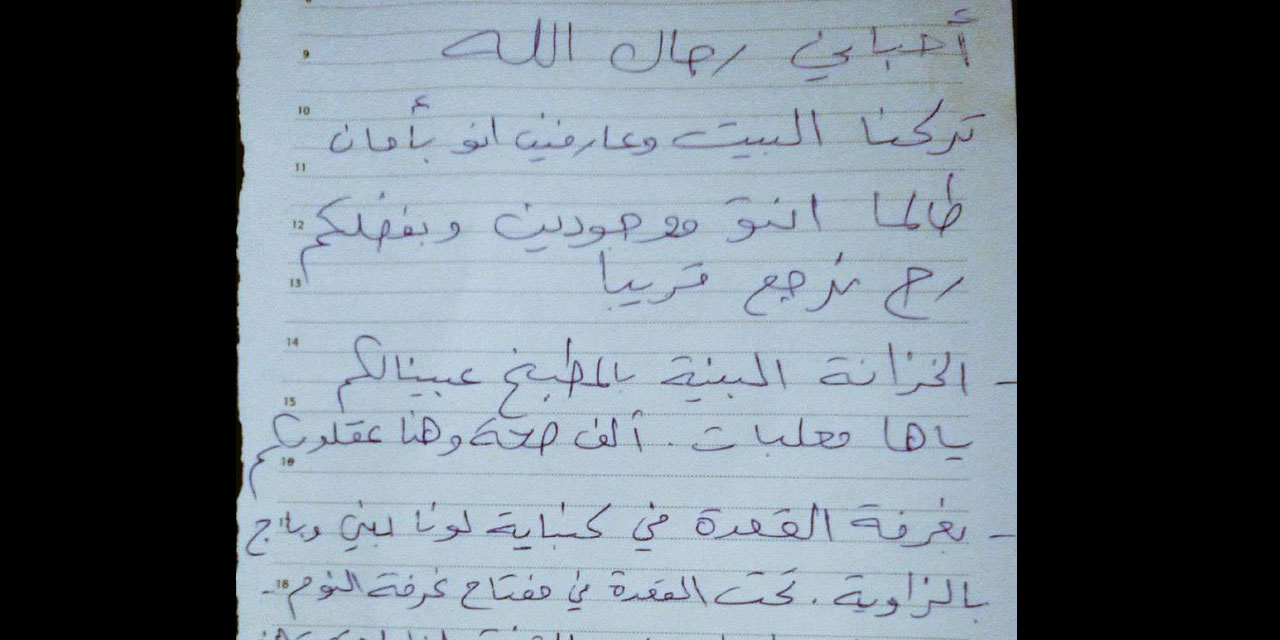 أحبابي رجال الله
تركنا البيت وعارفين انو بأمان
طالما انتو موجودين وبفضلكم
رح نرجع قريبا
- الخزانة البنية بالمطبخ عبينالكم
ياها معلبات. ألف صحة وهنا عقلوبكم
- بغرفة القعدة في كنباية لونا بني وبيج
بالزاوية. تحت القعدة في مفتاح غرفة النوم -
9
10
11
12
13
14
15
16
18